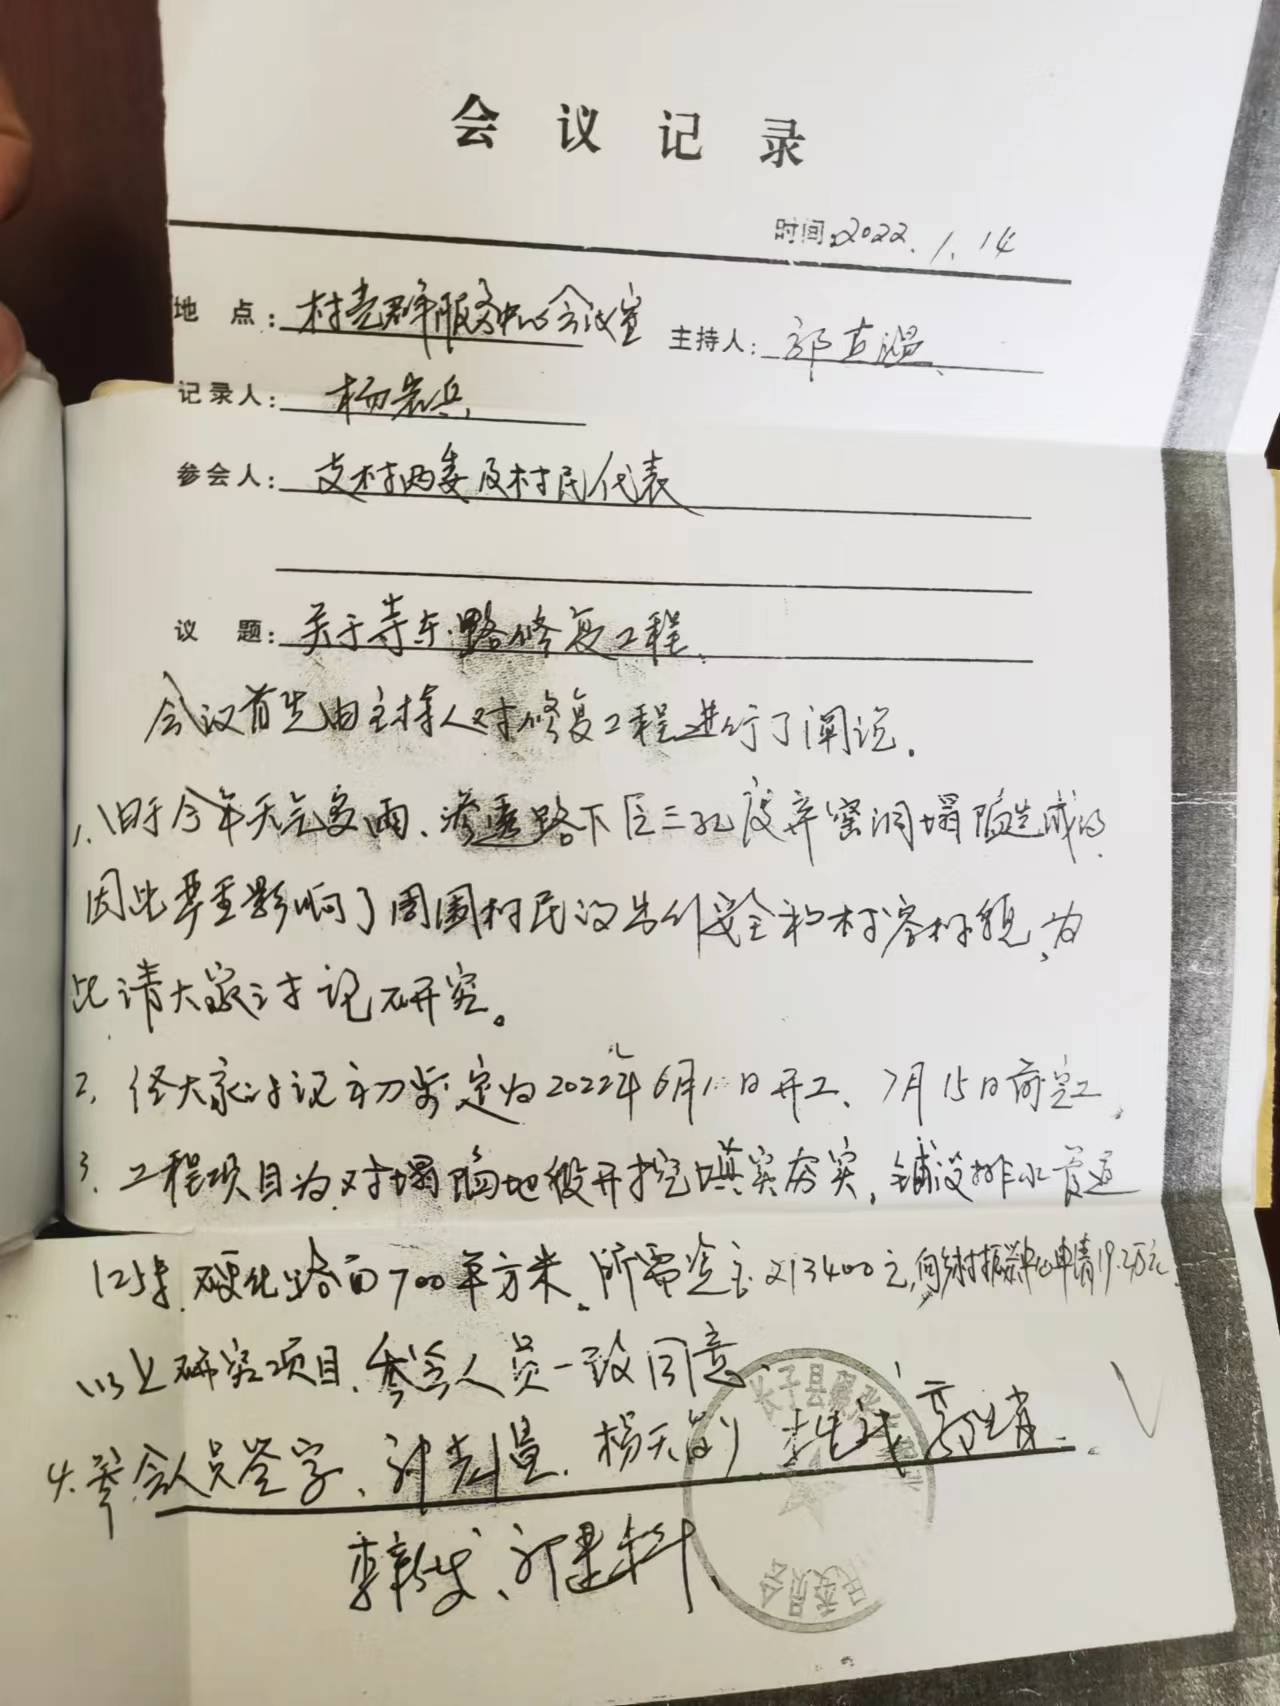 会议记录
时间:2022.1.14
地 点: 村党群服务中心会议室 主持人:
记录人: 杨
参会人: 支村两委及村民代表
议 题: 关于寺东路修复工程、
会议首先由主持人对修复工程进行了阐说.
1、由于今年天气多雨、渗透路下段三孔废弃窑洞塌陷造成的
因此严重影响了周围村民的出行安全和村容村貌,为
此请大家讨论研究。
2、经大家讨论初步定为2022年6月1日开工、7月15日前完工、
3、工程项目为对塌陷地段开挖填实夯实,铺设排水管道
125米.硬化路面700平方米、所需资金213400元,向乡村振兴中心申请19.2万元.
以上研究项目、参会人员一致同意
4.参会人员签字、
长子县
村民委员会